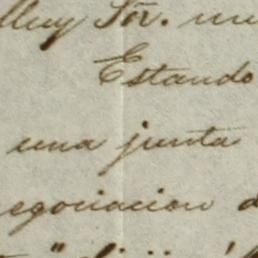 Muy Sör. mi
Estando
una junta
egociacion d